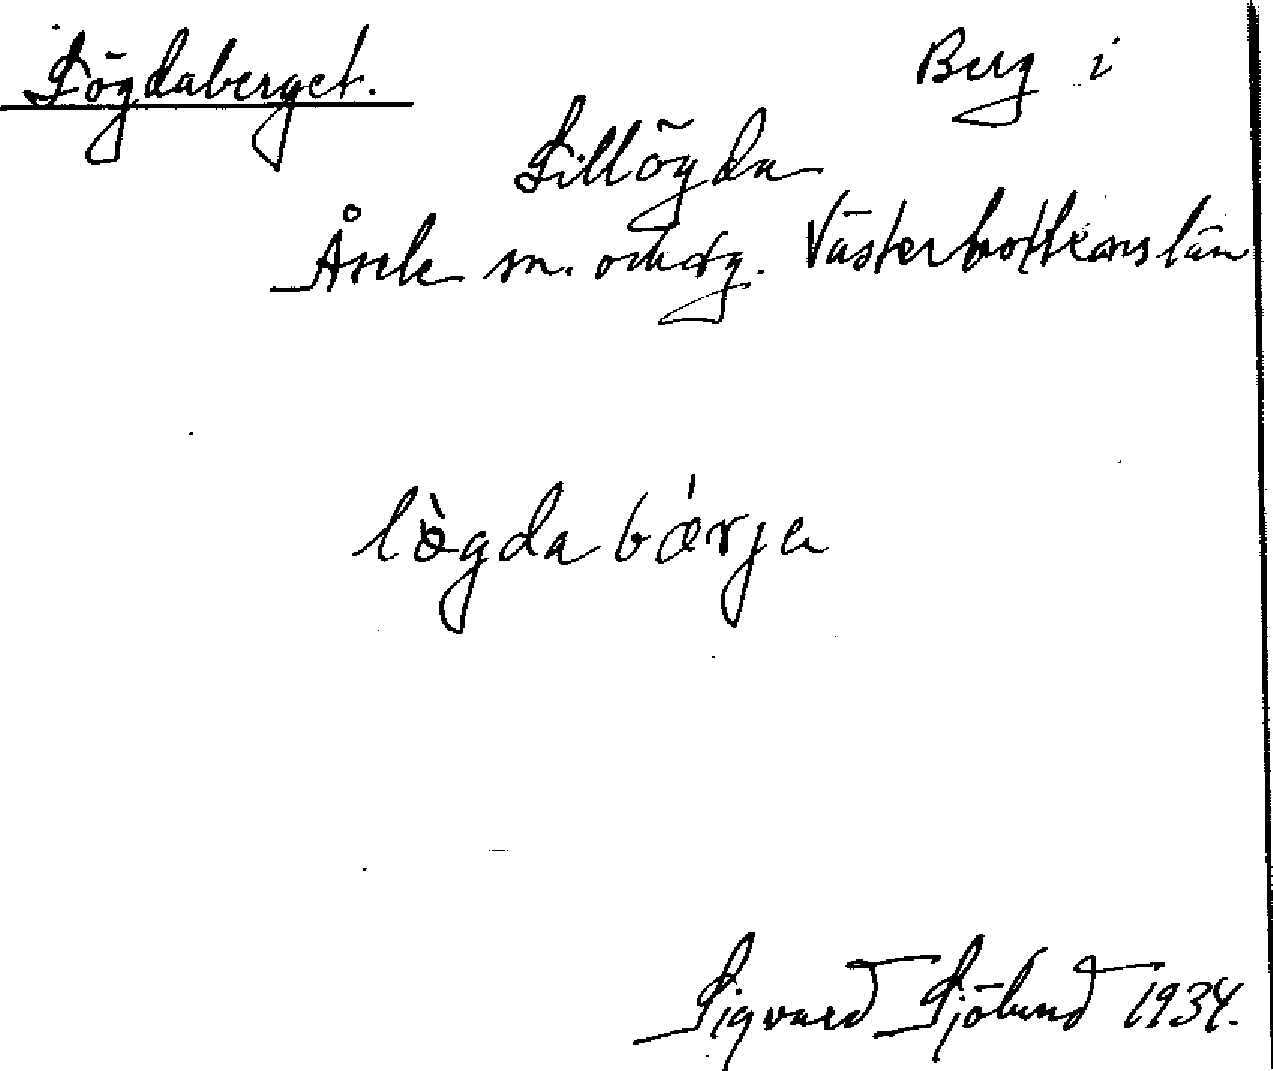 Lögdaberget. Berg i
Lillögda
Åsele sn. och tg. Västerbottens län
lögda bärja
Sigvard Sjölund 1934.